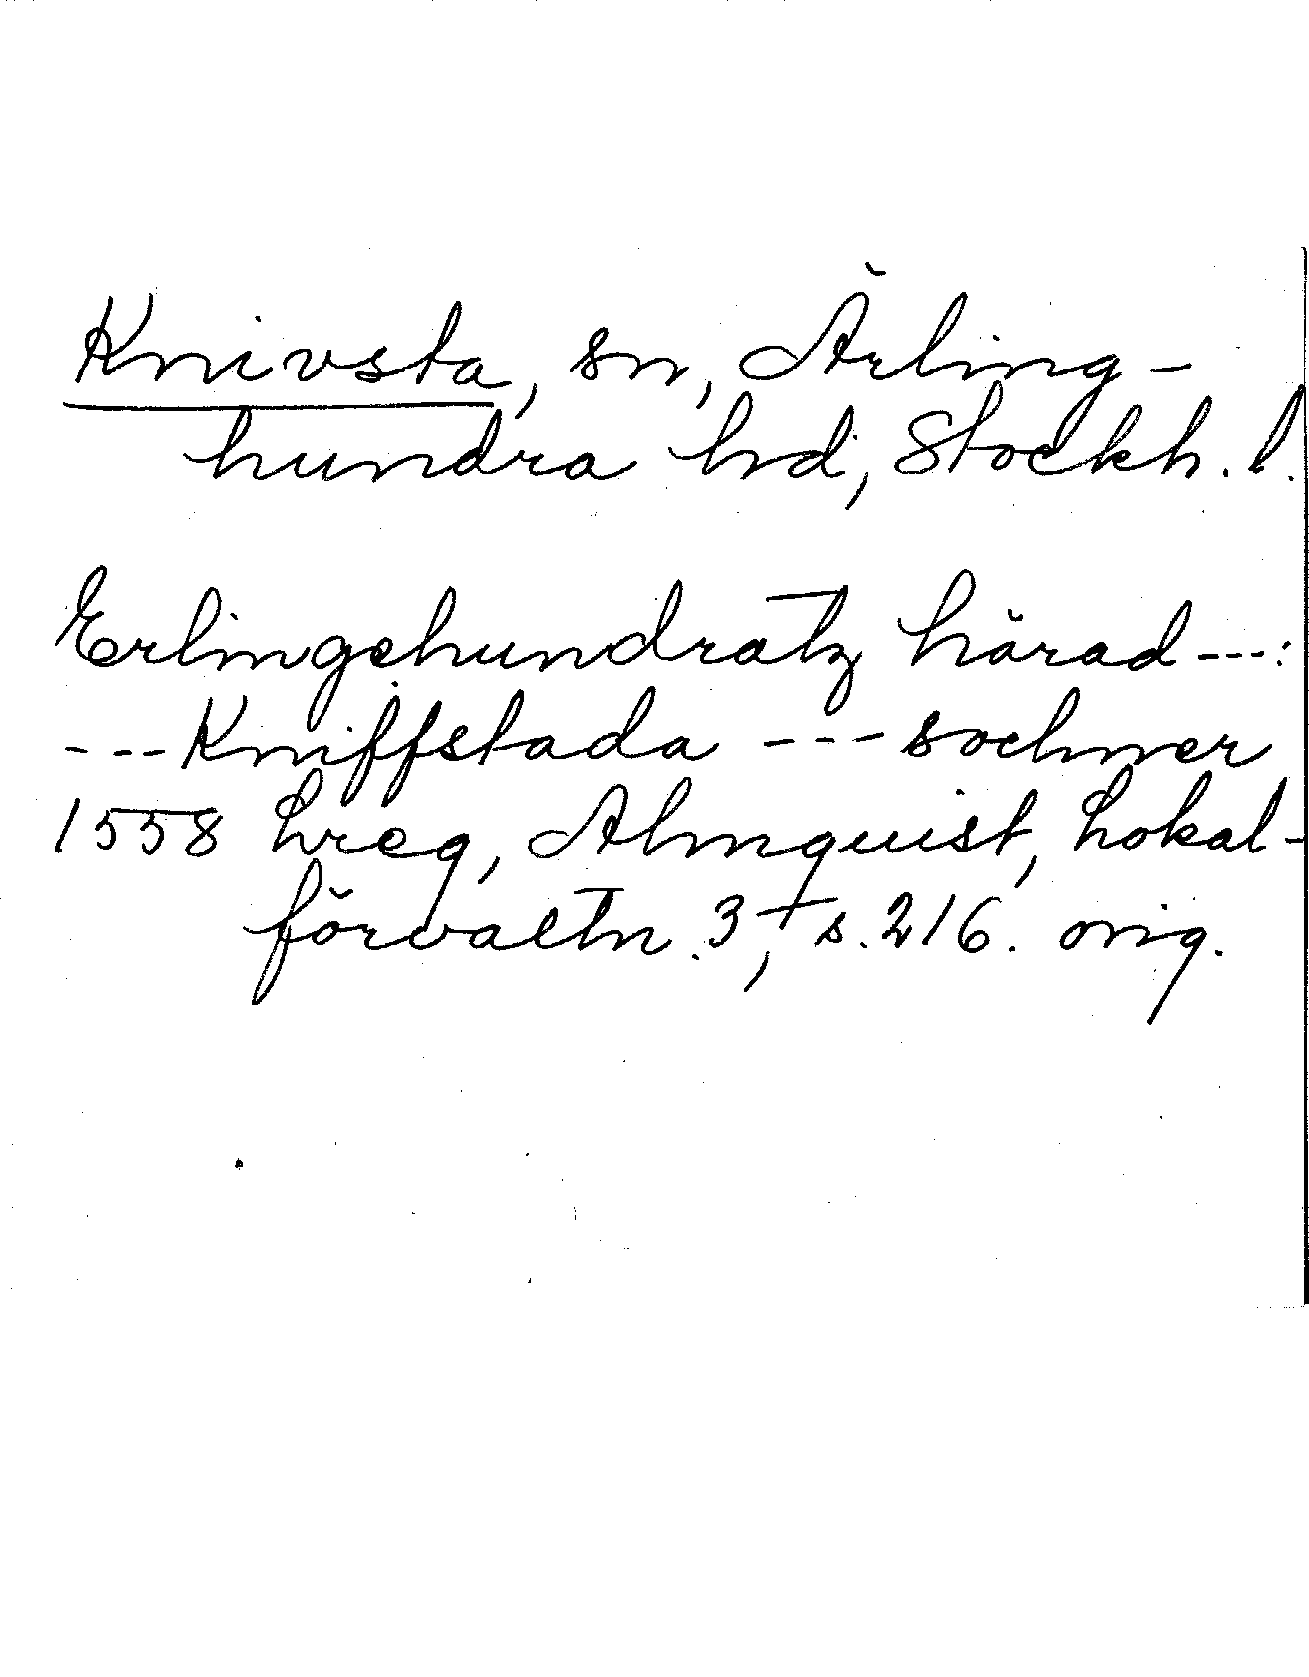 Knivsta, sn, Ärling-
hundra hd, Stockh. l.
Erlingehundratz härad ---:
--- Kniffstada --- sochner
1558 hreg, Almquist, Lokal-
förvaltn. 3, s. 216. orig.